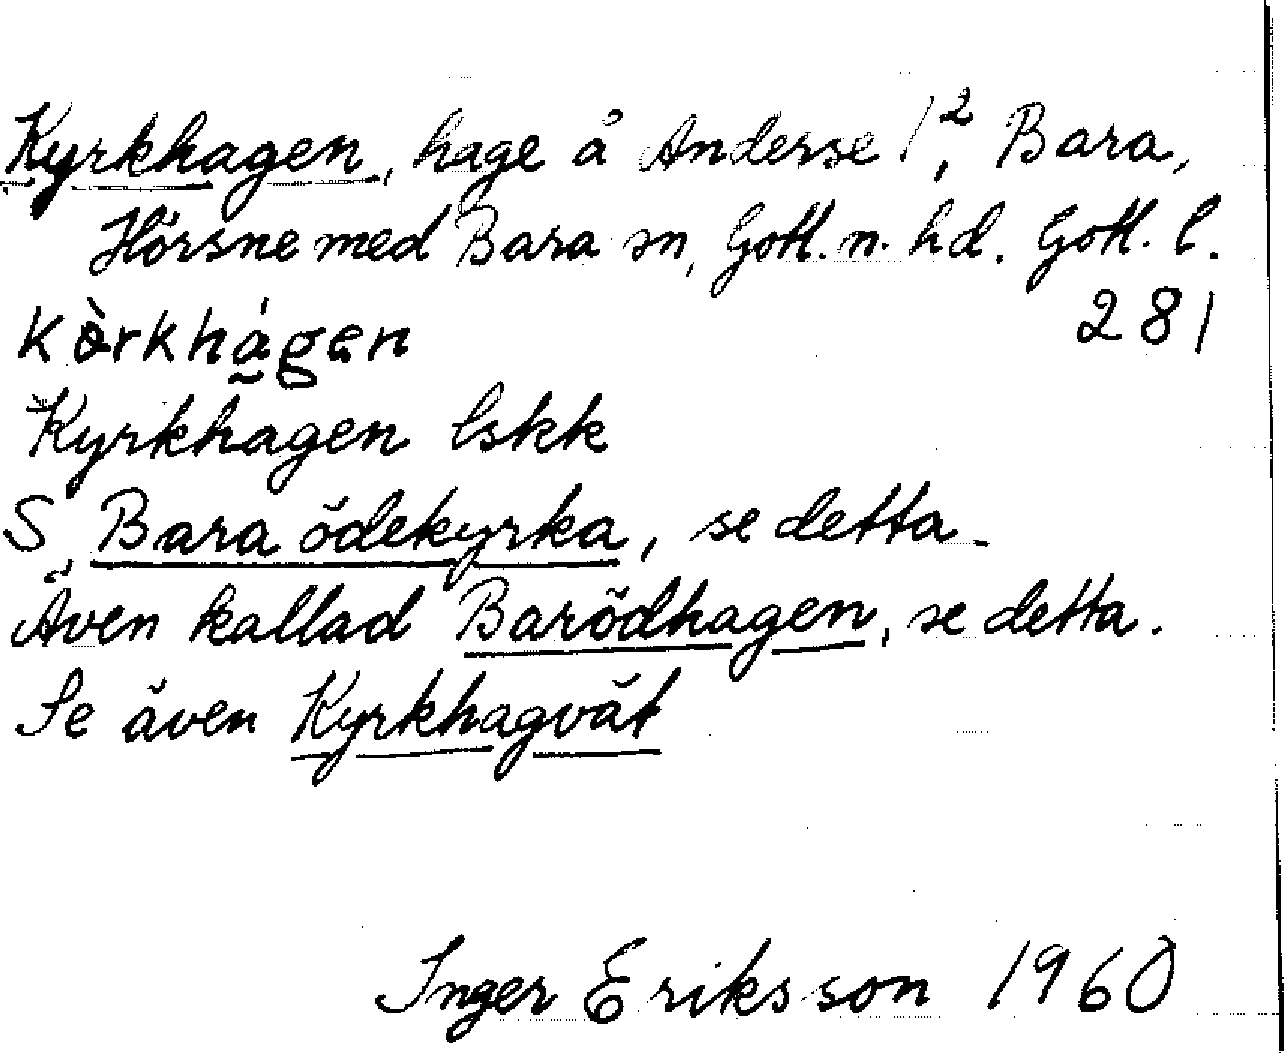 Kyrkhagen, hage å Anderse 1², Bara,
Hörsne med Bara sn, Gotl. n. hd. Gotl. l.
281
kòrkhágen
Kyrkhagen lskk
S. Bara ödekyrka, se detta.
Även kallad Barödhagen, se detta.
Se även Kyrkhagvät
Inger Eriksson 1960